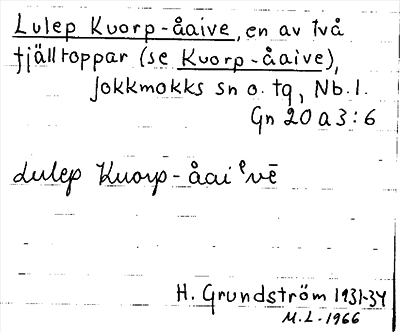 Lulep Kuorp-åaive, en av två
fjälltoppar (se Kuorp-åaive),
Jokkmokks sn o. tg, Nb. l.
Gn 20 a 3:6
Lulep Kuorp-åaiᵉvē
H. Grundström 1931-34
M.L. 1966